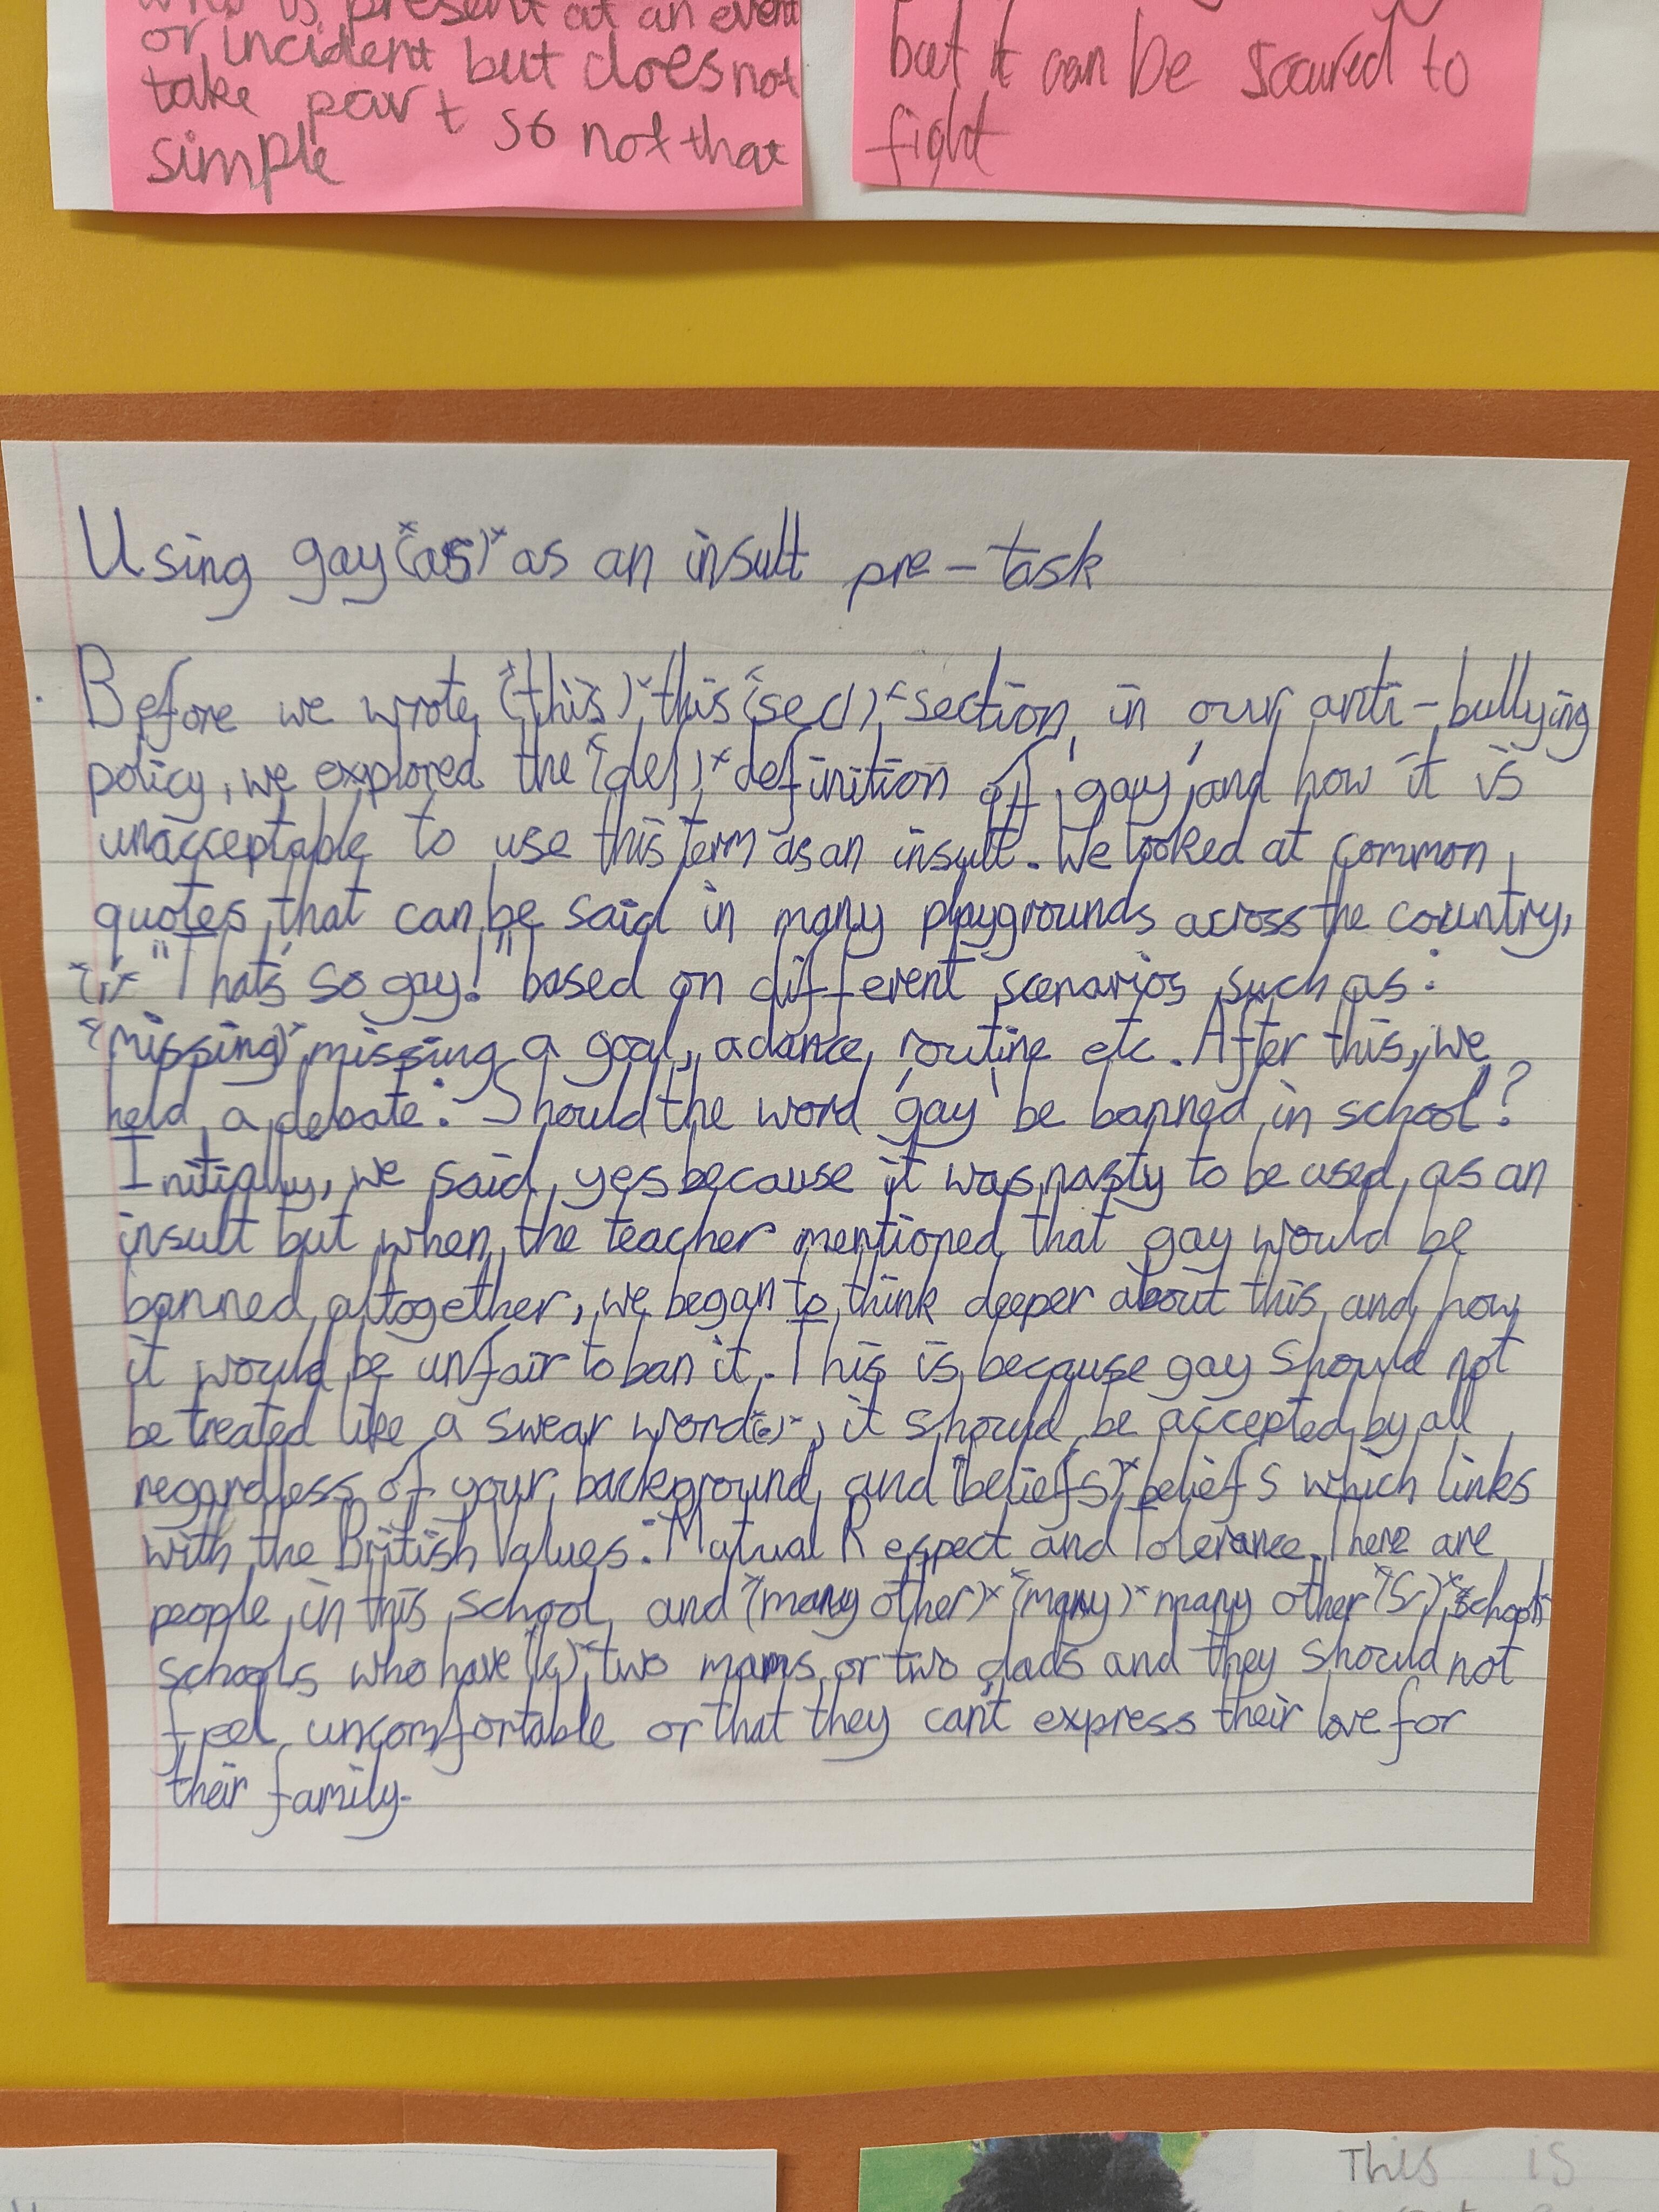 present at an event
or incident but does not
take part so not that
simple
but it can be scured to
fight
Using gay (as) as an insult pre-task
Before we wrote (this) this (sec) section in our anti-bullying
policy, we explored the (def) definition of 'gay' and how it is
unacceptable to use this term as an insult. We looked at common
quotes that can be said in many playgrounds across the country,
"That's so gay!" based on different scenarios such as:
(missing) missing a goal, a dance routine etc. After this, we
held a debate: Should the word 'gay' be banned in school?
Initially, we said yes because it was nasty to be used as an
insult but when the teacher mentioned that gay would be
banned altogether, we began to think deeper about this and how
it would be unfair to ban it. This is because gay should not
be treated like a swear word, it should be accepted by all
regardless of your background and (beliefs) beliefs which links
with the British Values: Mutual Respect and Tolerance. There are
people in this school and (many other) (many) many other (S) schools
schools who have two mams or two dads and they should not
feel uncomfortable or that they can't express their love for
their family.
This is